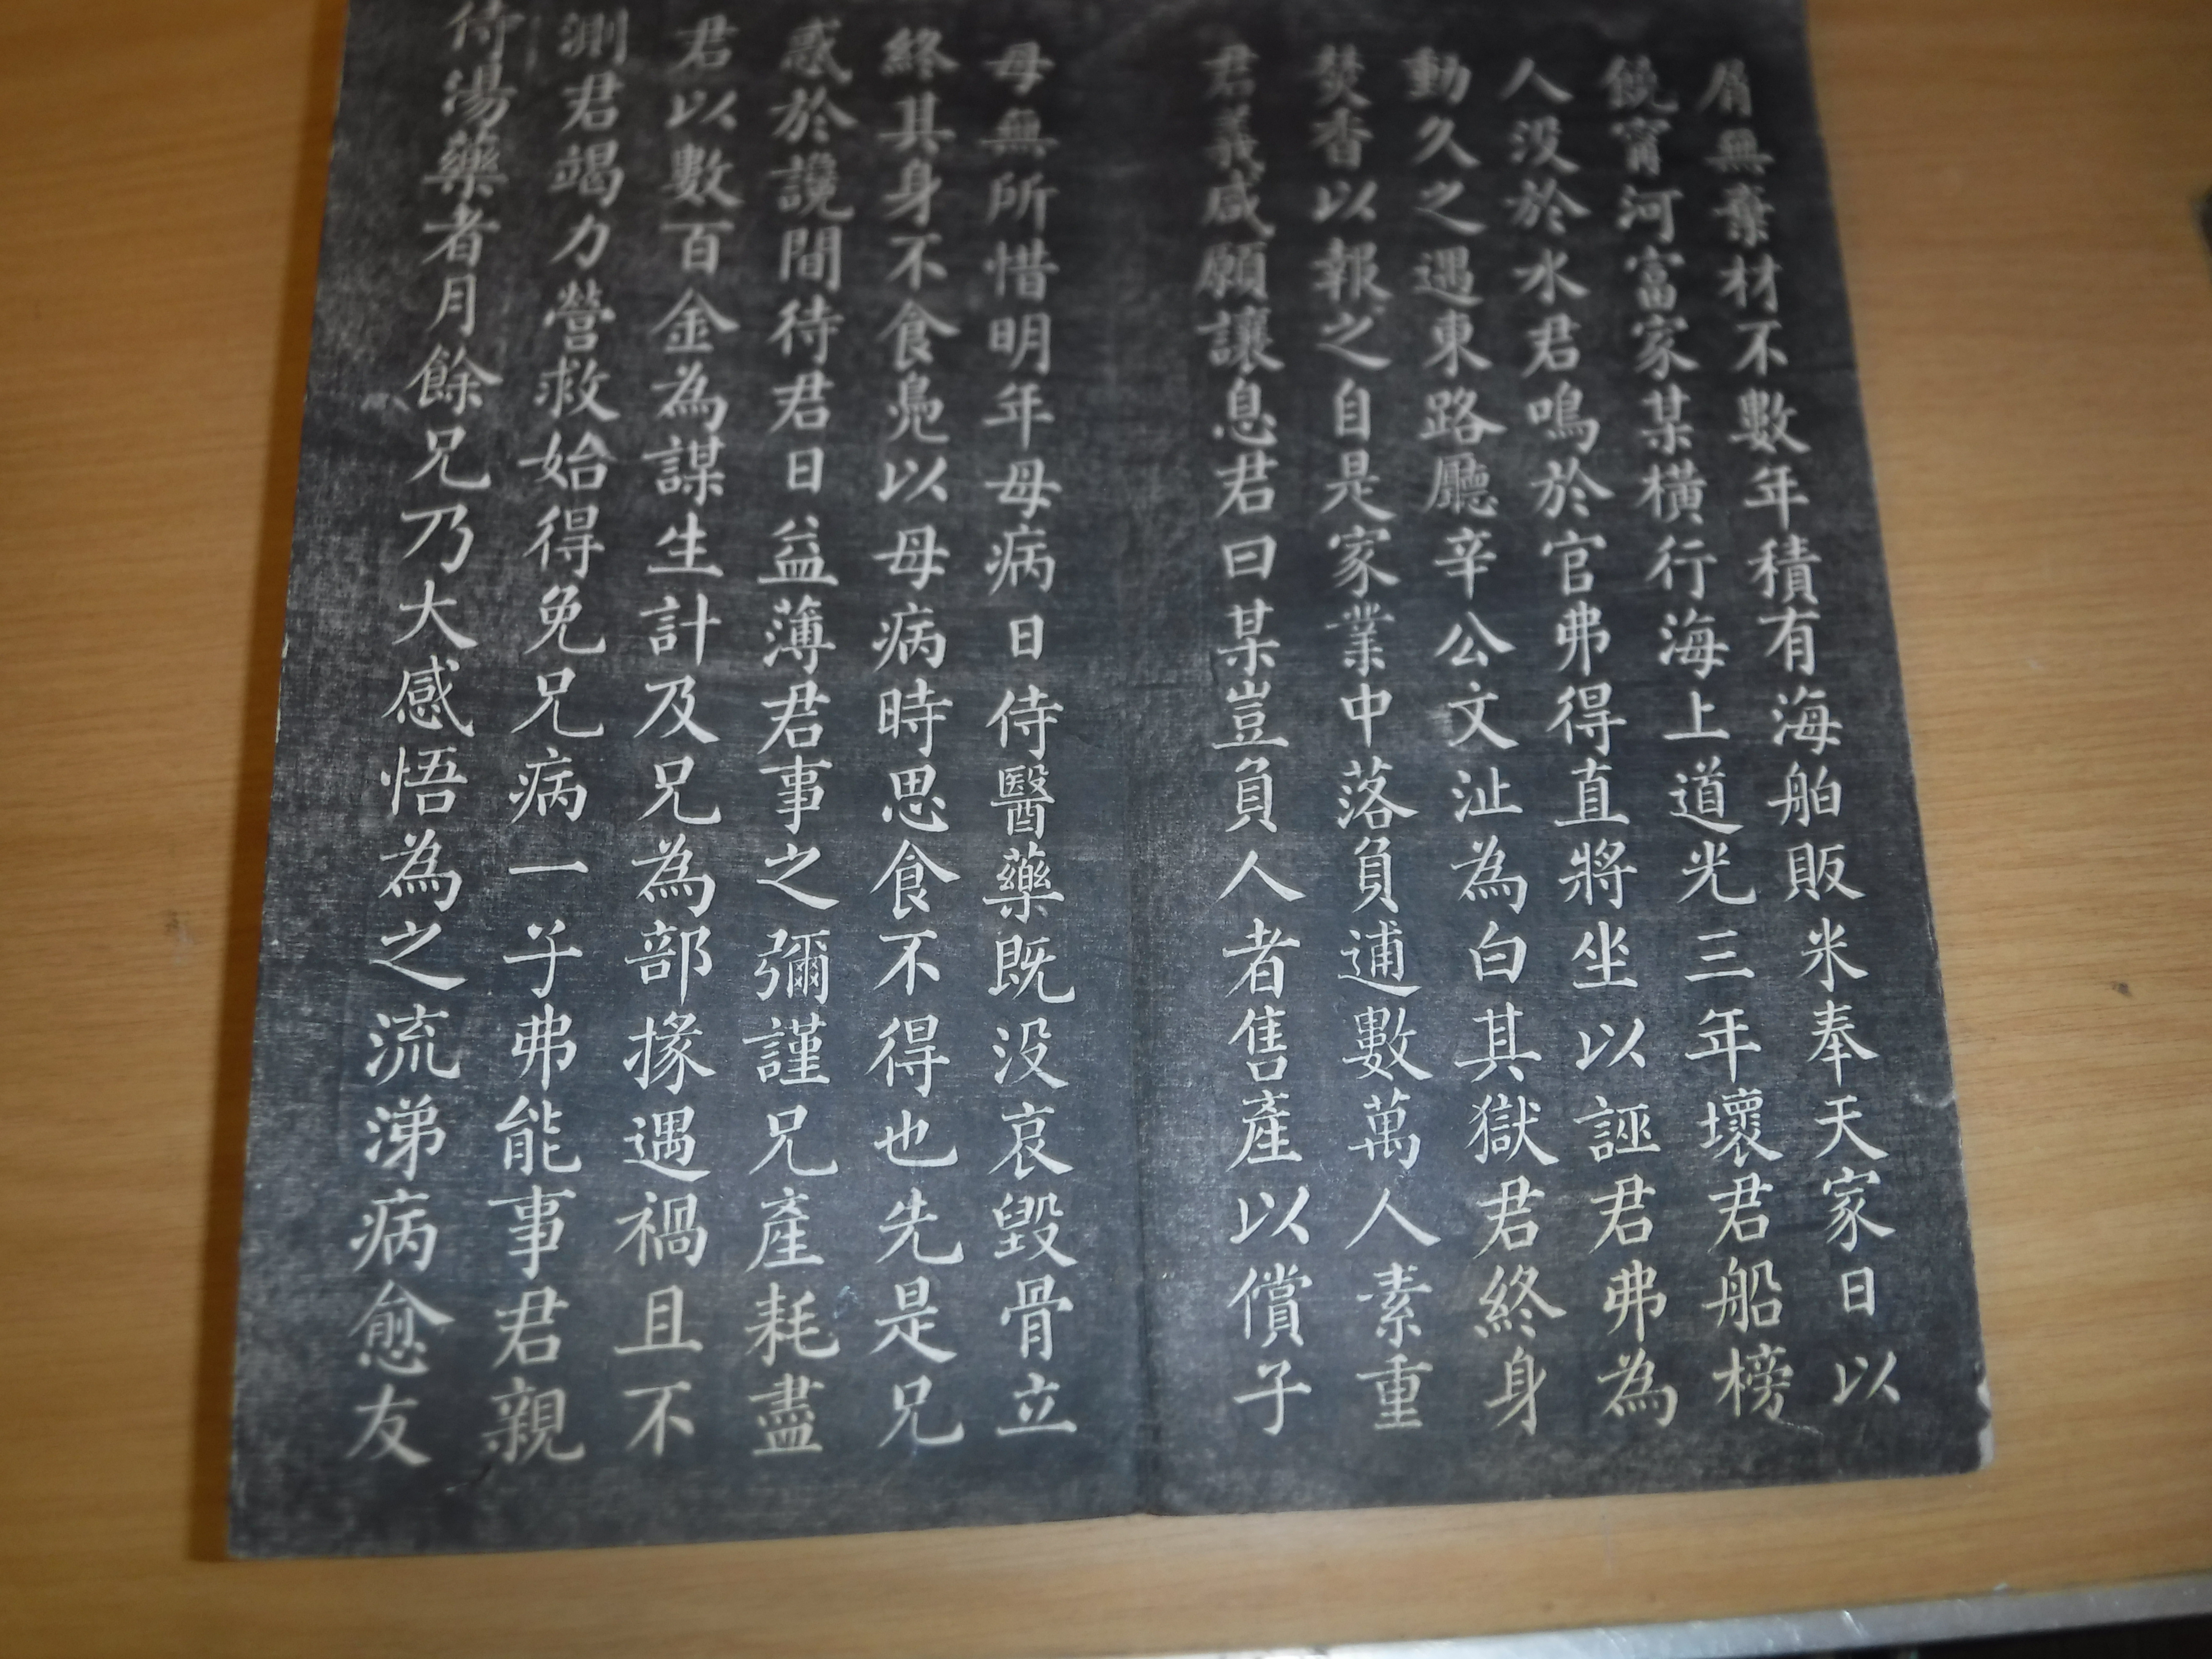 屑無棄材不數年積有海舶販米奉天家日以
饒甯河富家某橫行海上道光三年壞君船榜
人没於水君鳴於官弗得直將坐以誣君弗為
動久之遇東路廳辛公文沚為白其獄君終身
焚香以報之自是家業中落負逋數萬人素重
君義咸願讓息君曰某豈負人者售產以償子
母無所惜明年母病日侍醫藥既没哀毀骨立
終其身不食鳧以母病時思食不得也先是兄
惑於讒間待君日益薄君事之彌謹兄產耗盡
君以數百金為謀生計及兄為部掾遇禍且不
測君竭力營救始得免兄病一子弗能事君親
侍湯藥者月餘兄乃大感悟為之流涕病愈友